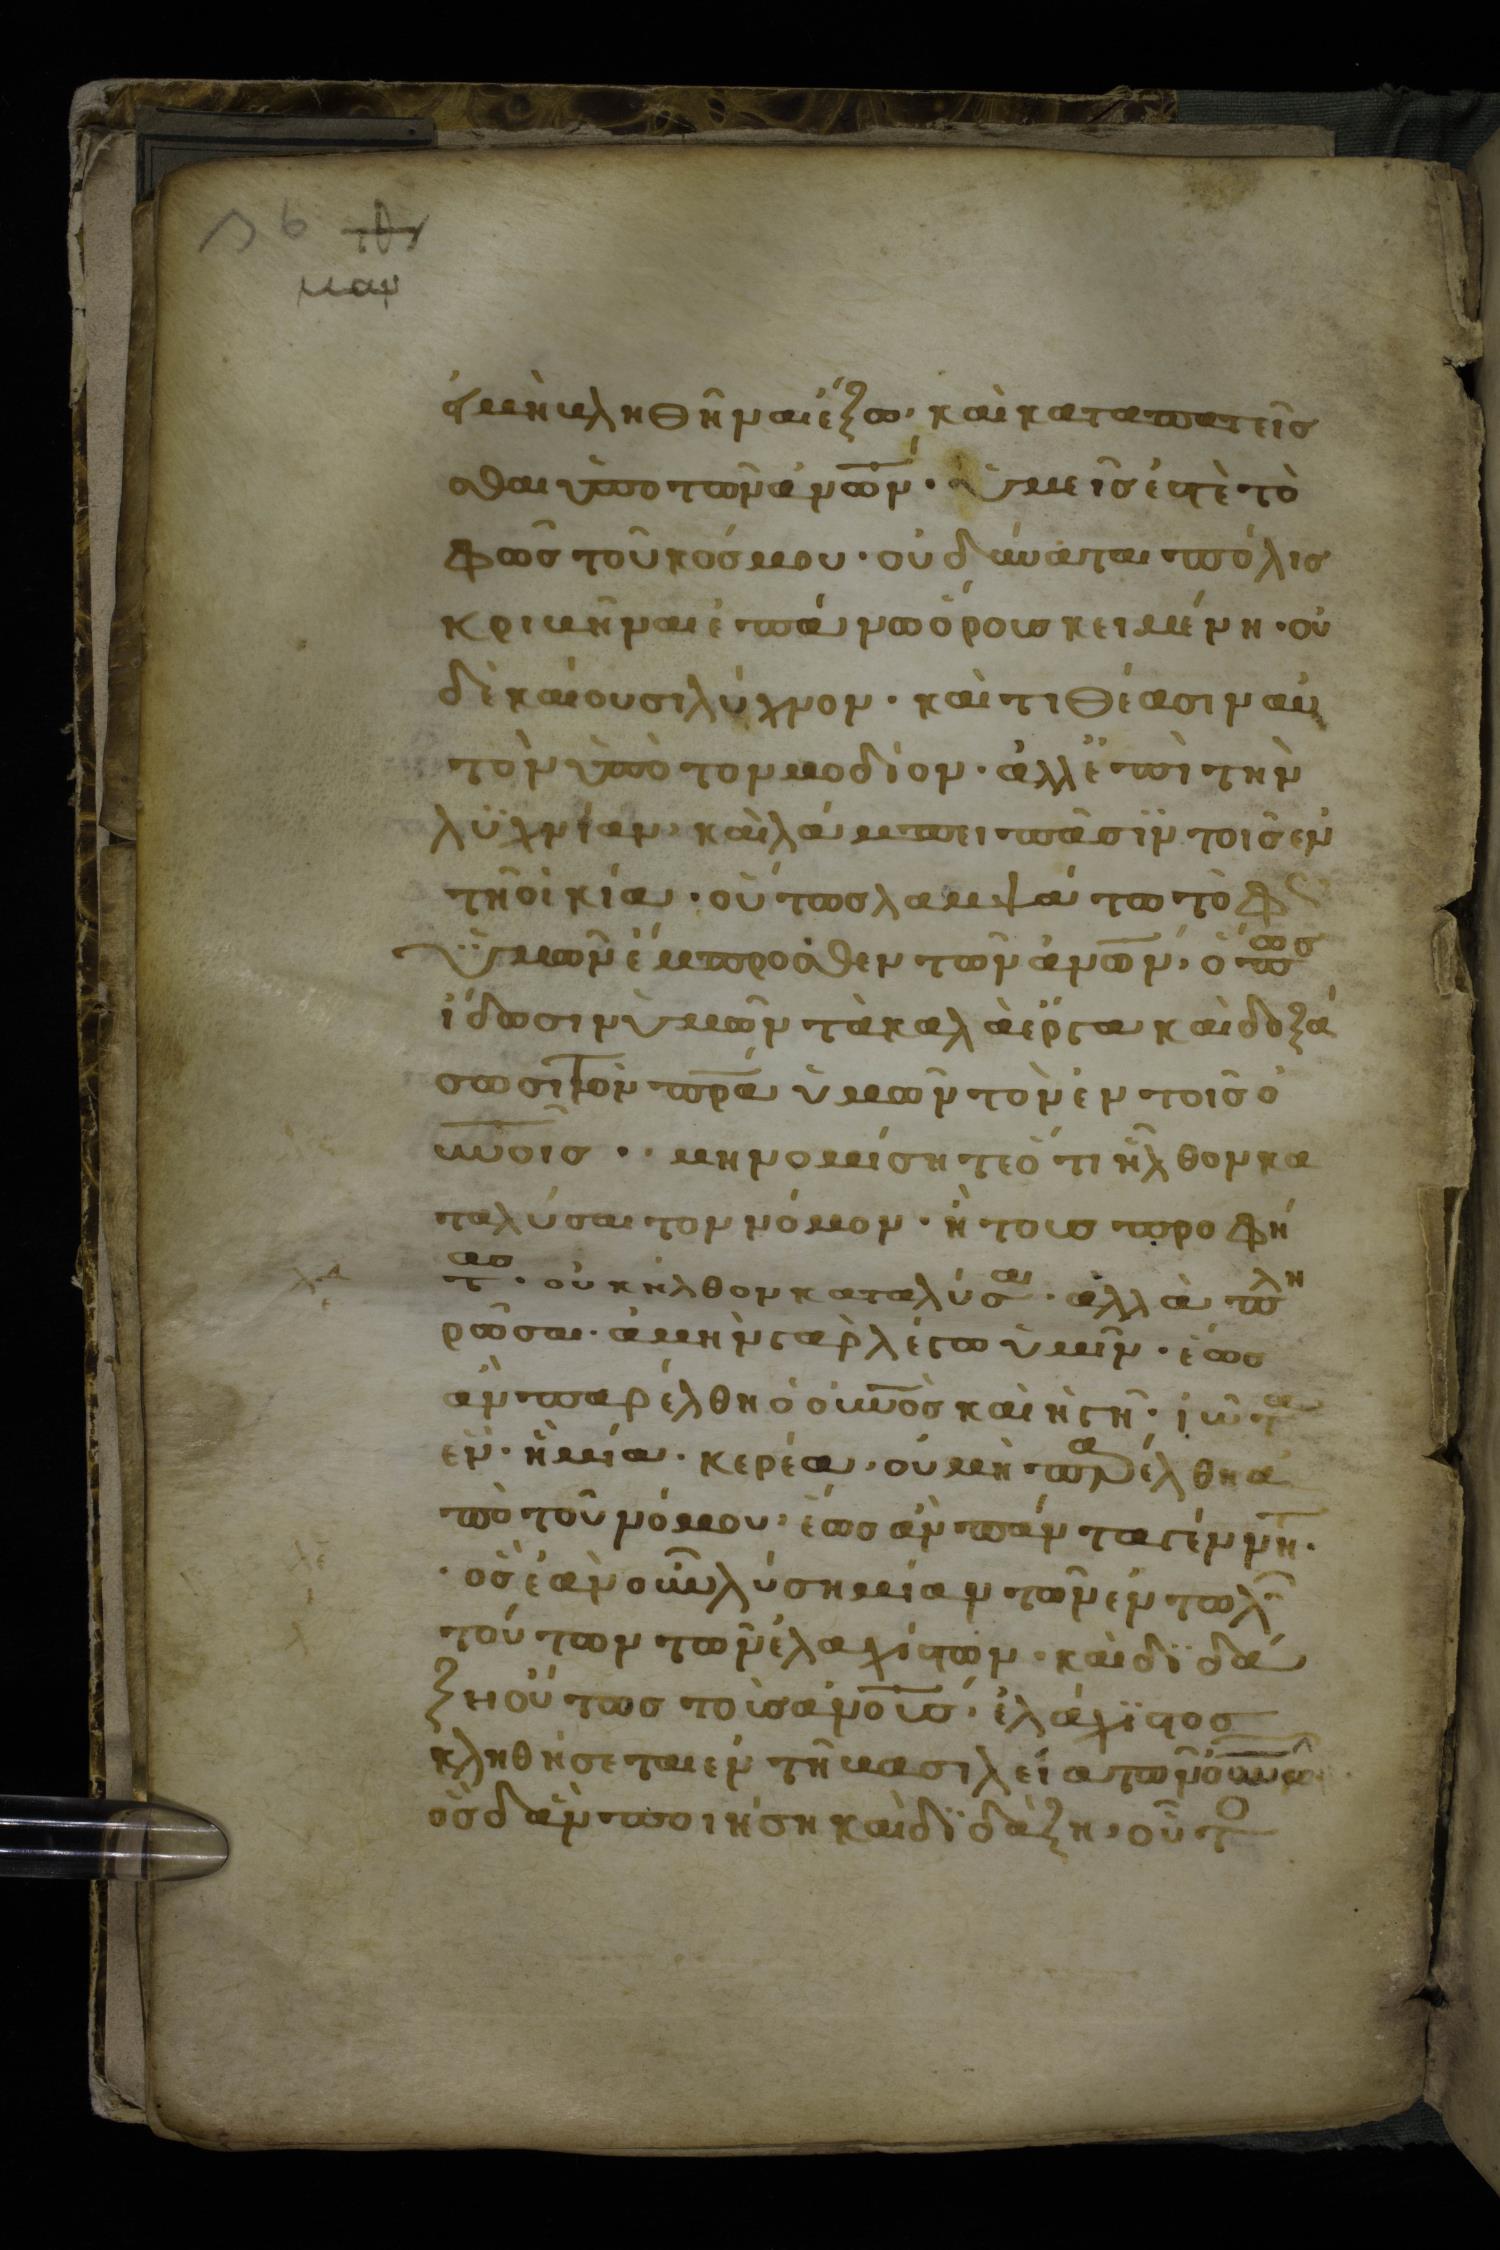 εἰ μὴ βληθῆναι ἔξω· καὶ καταπατεῖσ
θαι ὑπο τῶν ἀνω̅ν· ὑμεῖς ἐστὲ τὸ
φῶς τοῦ κόσμου· οὐ δύναται πόλις
κρυβῆναι ἐπάνω ὄρους κειμένη· οὐ
δὲ καίουσι λύχνον· καὶ τιθέασιν αὐ
τὸν ὑπὸ τον μοδιον· ἀλλ ἐπὶ τὴν
λυχνίαν· καὶ λάμπει πᾶσιν τοῖς ἐν
τῆ οἰκία· οὕτως λαμψάτω τὸ φῶς
ὑμῶν ἔμπροσθεν τῶν ἀνω̅ν, ὅπως
ἴδωσιν ὑμῶν τὰ καλὰ ἔργα καὶ δοξά
σωσι τὸν πρ̅α ὑμῶν τὸν ἐν τοῖς ο
υ̅νοις·· μη νομίσητε ὅτι ἦλθον κα
ταλύσαι τον νόμον· ἢ τους προφή
τας· οὐκ ἦλθον καταλύσαι· ἀλλὰ πλη
ρῶσαι· ἀμὴν γὰρ λέγω ὑμῖν· ἕως
ἂν παρέλθη ὁ ου̅νὸς καὶ ἡ γῆ· ἰῶτα
ἓν· ἢ μία· κερέα· οὐ μὴ παρέλθη ἀ
πὸ τοῦ νόμου· ἕως ἂν πάντα γένη̅·
· ὃς ἐὰν οὖν λύση μίαν τῶν ἐντολ
τούτων τῶν ἐλαχίστων· καὶ διδά
ξη οὕτως τοὺς ἀνο̅υς, ἐλάχιστος
κληθήσεται ἐν τῆ βασιλεία τῶν ου̅νω·
ὃς δ ἂν ποιήση καὶ διδάξη, οὗτο